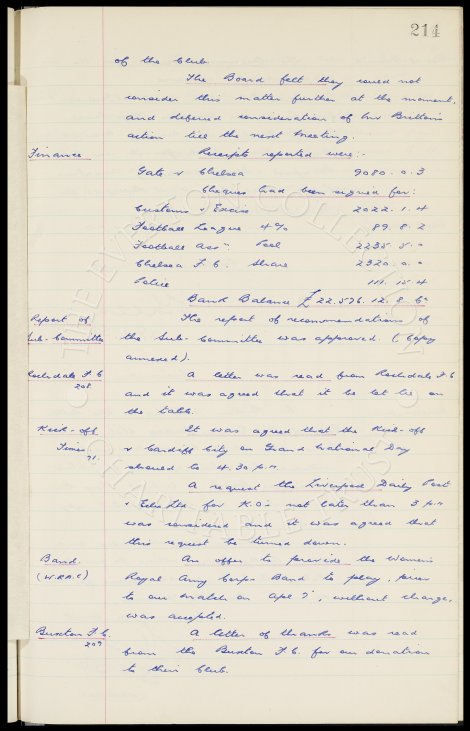 214
of the Club.
The Board felt they could not
consider this matter further at the moment,
and deferred consideration of Mr Britton's
action till the next meeting.
Finance Receipts reported were:-
Gate v Chelsea 9080. 0. 3
Cheques had been signed for:
Customs & Excise 2022. 1. 4
Football League 4% 89. 8. 2
Football Assn. Pool 2235. 5. 0
Chelsea F.C. Share 2320. 0. 0
Police 111. 15. 4
Bank Balance £22,576. 12. 8. Cr
Report of The report of recommendations of
Sub-Committee the Sub-Committee was approved. (Copy
annexed).
Rochdale F.C. A letter was read from Rochdale F.C.
208 and it was agreed that it be let lie on
the table.
Kick-off It was agreed that the Kick-off
Times v Cardiff City on Grand National Day
71. should be 4.30 p.m.
A request the Liverpool Daily Post
& Echo Ltd. for K.O's not later than 3 p.m
was considered and it was agreed that
this request be turned down.
Band. An offer to provide the Women's
(W.R.A.C) Royal Army Corps Band to play, prior
to our match on Apl 7, without charge,
was accepted.
Buxton F.C. A letter of thanks was read
207 from the Buxton F.C. for our donation
to their Club.
THE EVERTON COLLECTION
CHARITABLE TRUST